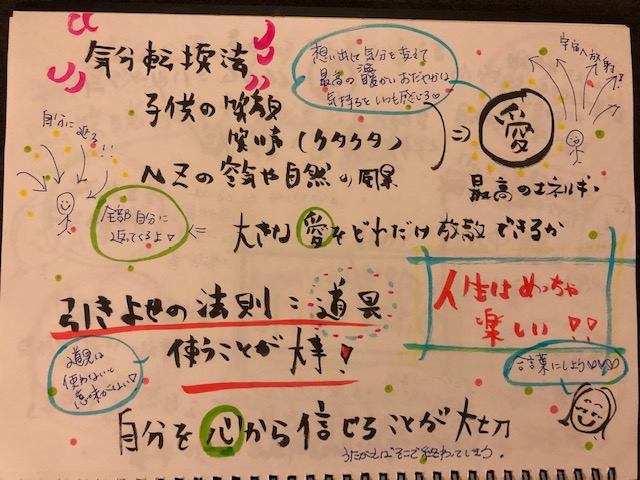 気分転換法
想い出して気分を変えて
最高の暖かいおだやかな
気持ちをいつも感じる♡
宇宙へ放射!!
子供の笑顔
笑い声(ケタケタ)
⇒ 愛
自分に返る!!
NZの空気や自然の風景
最高のエネルギー
全部自分に
返ってくるよ♡
⇐ 大きな愛をどれだけ放散できるか
人生はめっちゃ
楽しい♡♡
引きよせの法則=道具
使うことが大事!
道具は
使わないと
意味がないよ♡
合言葉にしよう♡♡♡
自分を心から信じることが大切
うたがえばそこで終わってしまう.